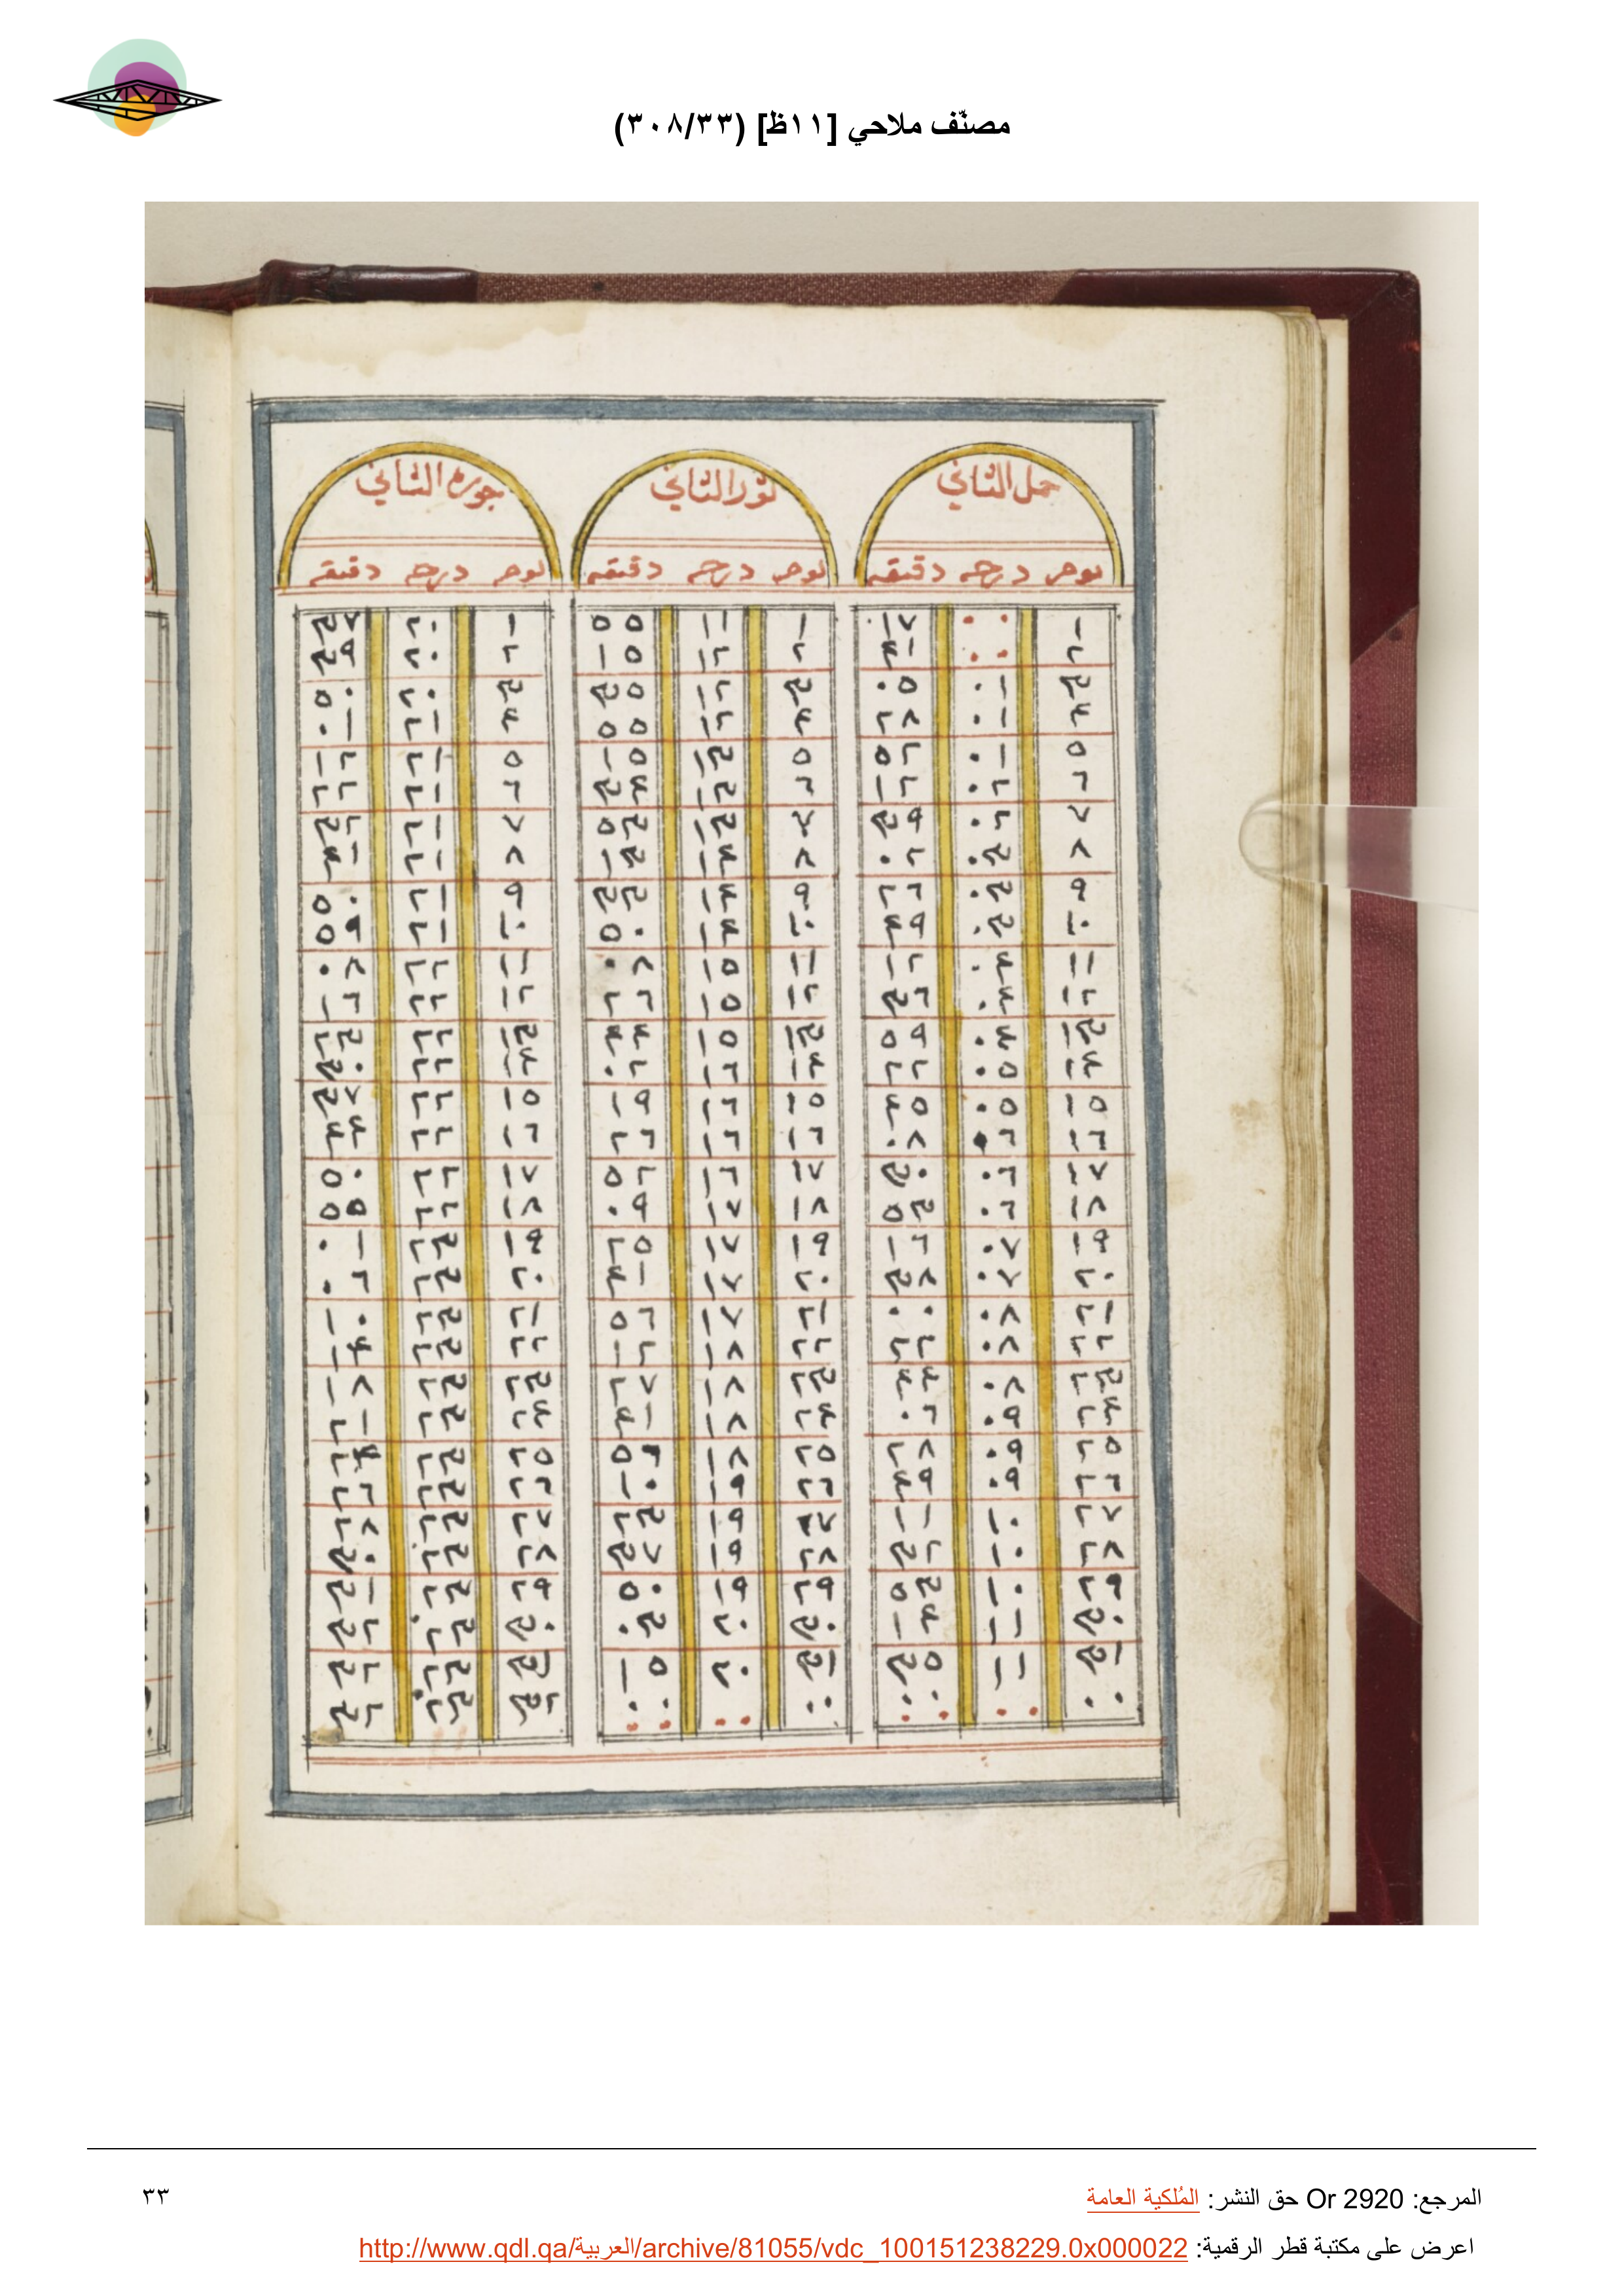 مصنّف ملاحي [١١ظ] (٣٠٨/٣٣)
حمل الثاني ثور الثاني جوزه الثاني
يوم درجه دقيقه يوم درجه دقيقه يوم درجه دقيقه
١ ٠٠ ١٧ ١ ١١ ٥٥ ١ ٢٠ ٣٧
٢ ٠٠ ٤١ ٢ ١٢ ١٥ ٢ ٢٠ ٣٩
٣ ٠١ ٠٥ ٣ ١٢ ٣٥ ٣ ٢٠ ٥٠
٤ ٠١ ٢٨ ٤ ١٢ ٥٥ ٤ ٢١ ٠١
٥ ٠١ ٥٢ ٥ ١٣ ١٥ ٥ ٢١ ١٢
٦ ٠٢ ١٢ ٦ ١٣ ٣٤ ٦ ٢١ ٢٢
٧ ٠٢ ٣٩ ٧ ١٣ ٥٣ ٧ ٢١ ٣٢
٨ ٠٣ ٠٢ ٨ ١٤ ١٣ ٨ ٢١ ٤١
٩ ٠٣ ٢٦ ٩ ١٤ ٣٣ ٩ ٢١ ٥٠
١٠ ٠٣ ٤٩ ١٠ ١٤ ٥٠ ١٠ ٢١ ٥٩
١١ ٠٤ ١٢ ١١ ١٥ ٠٨ ١١ ٢٢ ٠٨
١٢ ٠٤ ٣٦ ١٢ ١٥ ٢٦ ١٢ ٢٢ ١٦
١٣ ٠٤ ٥٩ ١٣ ١٥ ٤٤ ١٣ ٢٢ ٢٣
١٤ ٠٥ ٢٢ ١٤ ١٦ ٠٢ ١٤ ٢٢ ٣٠
١٥ ٠٥ ٤٥ ١٥ ١٦ ١٩ ١٥ ٢٢ ٣٧
١٦ ٠٦ ٠٨ ١٦ ١٦ ٢٦ ١٦ ٢٢ ٤٤
١٧ ٠٦ ٣٠ ١٧ ١٦ ٥٢ ١٧ ٢٢ ٥٠
١٨ ٠٦ ٥٣ ١٨ ١٧ ٠٩ ١٨ ٢٢ ٥٥
١٩ ٠٧ ١٦ ١٩ ١٧ ٢٥ ١٩ ٢٣ ٠١
٢٠ ٠٧ ٣٨ ٢٠ ١٧ ٤١ ٢٠ ٢٣ ٠٦
٢١ ٠٨ ٠٠ ٢١ ١٧ ٥٦ ٢١ ٢٣ ١٠
٢٢ ٠٨ ٢٢ ٢٢ ١٨ ١٢ ٢٢ ٢٣ ١٤
٢٣ ٠٨ ٤٤ ٢٣ ١٨ ٢٧ ٢٣ ٢٣ ١٨
٢٤ ٠٩ ٠٦ ٢٤ ١٨ ٤١ ٢٤ ٢٣ ٢١
٢٥ ٠٩ ٢٨ ٢٥ ١٨ ٥٦ ٢٥ ٢٣ ٢٤
٢٦ ٠٩ ٤٩ ٢٦ ١٩ ١٠ ٢٦ ٢٣ ٢٦
٢٧ ١٠ ١١ ٢٧ ١٩ ٢٣ ٢٧ ٢٣ ٢٨
٢٨ ١٠ ٣٢ ٢٨ ١٩ ٣٧ ٢٨ ٢٣ ٣٠
٢٩ ١٠ ٥٣ ٢٩ ١٩ ٥٠ ٢٩ ٢٣ ٣١
٣٠ ١١ ١٤ ٣٠ ٢٠ ٠٣ ٣٠ ٢٣ ٣٢
٣١ ١١ ٣٥ ٣١ ٢٠ ١٥ ٣١ ٢٣ ٣٢
٠٠ ٠٠ ٠٠ ٠٠ ٠٠ ٠٠ ٣٢ ٢٣ ٣٢
المرجع: Or 2920 حق النشر: المُلكية العامة
٣٣
اعرض على مكتبة قطر الرقمية: http://www.qdl.qa/العربية/archive/81055/vdc_100151238229.0x000022